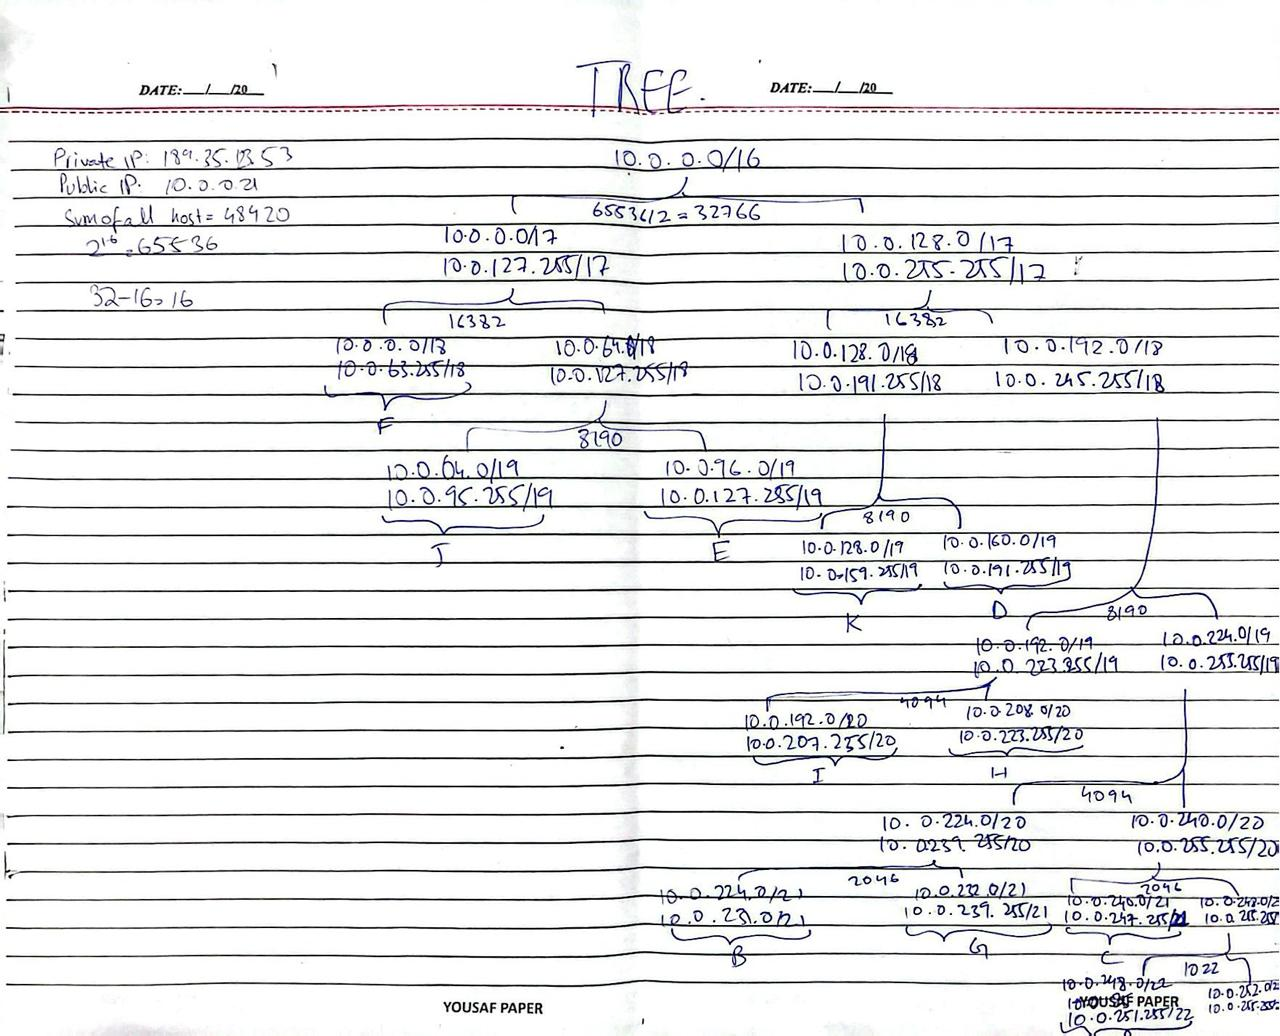 TREE.
DATE:__/__/20__
DATE:__/__/20__
Private IP: 189.35.123.53
Public IP. 10.0.0.21
Sum of all host = 48420
2^16 = 65536
32-16=16
10.0.0.0/16
65536/2 = 32766
10.0.0.0/17
10.0.127.255/17
10.0.128.0/17
10.0.255.255/17
16382
16382
10.0.0.0/18
10.0.63.255/18
F
10.0.64.0/18
10.0.127.255/18
10.0.128.0/18
10.0.191.255/18
10.0.192.0/18
10.0.245.255/18
8190
10.0.64.0/19
10.0.95.255/19
J
10.0.96.0/19
10.0.127.255/19
E
8190
10.0.128.0/19
10.0.159.255/19
K
10.0.160.0/19
10.0.191.255/19
D
8190
10.0.192.0/19
10.0.223.255/19
10.0.224.0/19
10.0.255.255/19
4094
10.0.192.0/20
10.0.207.255/20
I
10.0.208.0/20
10.0.223.255/20
H
4094
10.0.224.0/20
10.0239.255/20
10.0.240.0/20
10.0.255.255/20
2046
10.0.224.0/21
10.0.231.0/21
B
10.0.232.0/21
10.0.239.255/21
G
2046
10.0.240.0/21
10.0.247.255/21
C
10.0.248.0/2
10.0.255.255
1022
10.0.248.0/22
10.0.251.255/22
10.0.252.0/2
10.0.255.255
YOUSAF PAPER
YOUSAF PAPER